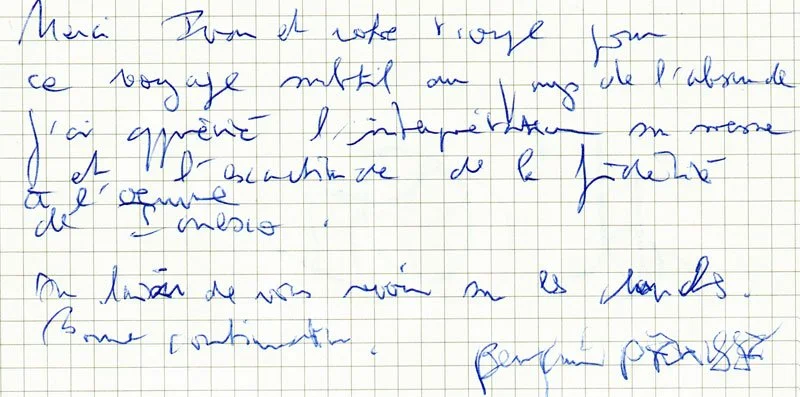 Merci Ivan et votre pour
ce voyage subtil au pays de l'absurde
J'ai apprécié l'interprétation
et l'exactitude de la fidélité
à l'oeuvre
de Ionesco.
Au plaisir de vous revoir sur les planches.
Bonne continuation.